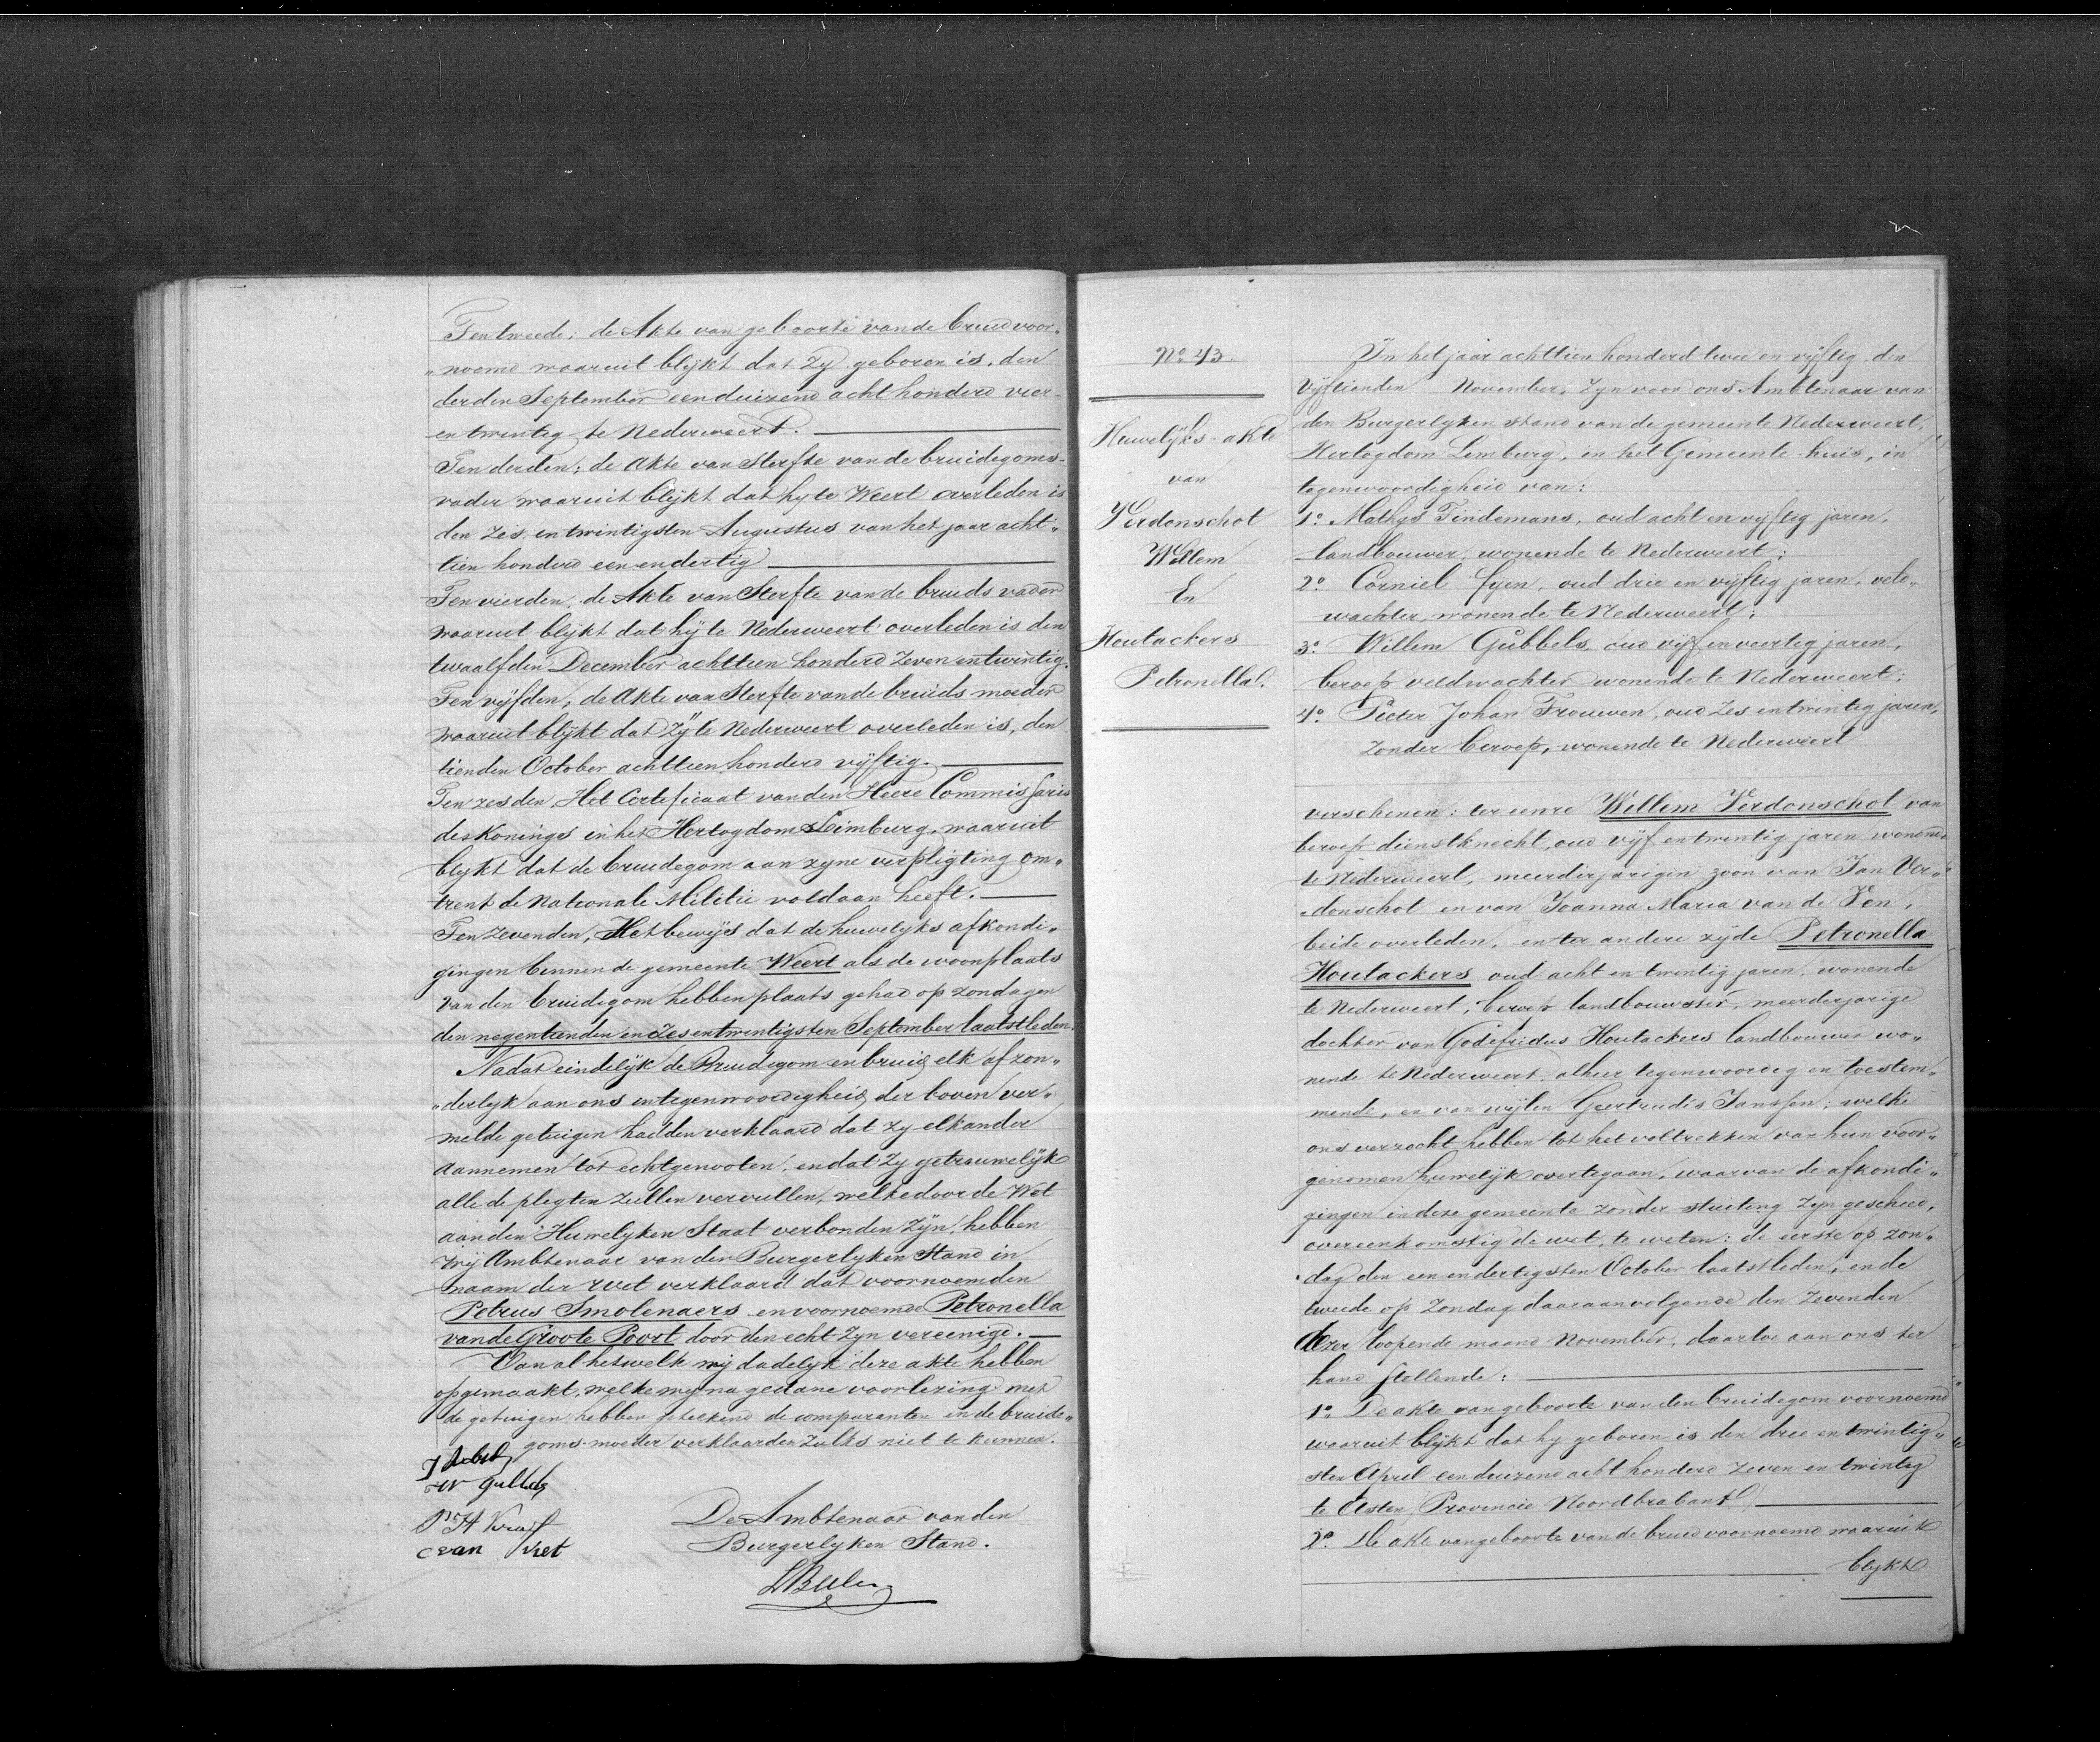 Ten tweede; de Akte van geboorte van de bruid voor„
„noemd waaruit blijkt dat zy geboren is, den
derden September eenduizend acht honderd vier-
en twintig te Nederweert.
Ten derden; de Akte van Sterfte van de bruidegoms-
vader waaruit blijkt dat hy te Weert overleden is
den zes en twintigsten Augustus van het jaar acht„
tien honderd een en dertig
Ten vierden, de Akte van Sterfte van de bruids vader
waaruit blijkt dat hij te Nederweert overleden is den
twaalfden December achttien honderd zeven en twintig.
Ten vijfden, de Akte van Sterfte van de bruids moeder
waaruit blijkt dat zij te Nederweert overleden is, den
tienden October achttien honderd vijftig.
Ten zesden, Het Certeficaat van den Heere Commissaris
des Konings in het Hertogdom Limburg, waaruit
blykt dat de bruidegom aan zyne verpligting om„
trent de Nationale Militie voldaan heeft.
Ten Zevenden, Het bewijs dat de huwelyks afkondi„
gingen binnen de gemeente Weert als de woonplaats
van den bruidegom hebben plaats gehad op zondagen
den negentienden en zesentwintigsten September laatstleden.
Nadat eindelijk de Bruidegom en bruid elk afzon„
„derlyk aan ons in tegenwoordigheid der boven ver„
melde getuigen hadden verklaard dat zy elkander
aannemen tot echtgenooten, en dat zy getrouwelijk
alle de plegten zullen vervullen, welke door de Wet
aan den Huwelyken Staat verbonden Zijn, hebben
Wij Ambtenaar van den Burgerlyken Stand in
naam der wet verklaard dat voornoemden
Petrus Smolenaers en voornoemde Petronella
van de Groote Poort door den echt Zyn vereenigd.
Van al hetwelk wij dadelyk deze akte hebben
opgemaakt, welke wy na gedane voorlezing met
de getuigen hebben geteekend de comparanten en de bruide„
goms moeder verklaarden zulks niet te kunnen.
De Ambtenaar van den
Burgerlyken Stand.
No 43.
Huwelijks-akte
van
Verdonschot
Willem
En
Houtackers
Petronella.
In het jaar achttien honderd twee en vijftig den
Vijftienden November, Zyn voor ons Ambtenaar van
den Burgerlyken stand van de gemeente Nederweert,
Hertogdom Limburg, in het Gemeente-huis, in
tegenwoordigheid van:
1o. Mathys Tindemans, oud acht en vyftig jaren,
landbouwer, wonende te Nederweert;
2o. Corniel Fyen, oud drie en vijftig jaren, veld„
wachter, wonende te Nederweert;
3o. Willem Gubbels oud vijf en veertig jaren,
beroep veldwachter wonende te Nederweert;
4o. Pieter Johan Trouwen, oud Zes en twintig jaren,
zonder beroep, wonende te Nederweert
verschenen: ter eenre Willem Verdonschot van
beroep dienstknecht, oud vijf en twintig jaren wonend
te Nederweert, meerderjarigen zoon van Jan Ver„
donschot en van Joanna Maria van de Ven,
beide overleden, en ter andere zijde Petronella
Houtackers oud acht en twintig jaren, wonende
te Nederweert, beroep landbouwster, meerderjarige
dochter van Godefridus Houtackers landbouwer wo„
nende te Nederweert, alhier tegenwoordig en toestem„
mende, en van wijlen Geertrudis Janssen; welke
ons verzocht hebben tot het voltrekken van hun voor„
genomen huwelijk overtegaan, waarvan de afkondi„
gingen in deze gemeente zonder stuiting Zyn geschied,
overeenkomstig de wet, te weten: de eerste op zon„
dag den een en dertigsten October laatstleden, en de
tweede op Zondag daaraanvolgende den Zevenden
dezer loopende maand November, daartoe aan ons ter
hand stellende:
1o. De akte van geboorte van den bruidegom voornoemd
waaruit blijkt dat hy geboren is den drie en twintig„
sten April een duizend acht honderd Zeven en twintig
te Asten (Provincie Noordbraband)
2o. De akte van geboorte van de bruid voornoemd waaruit
blykt